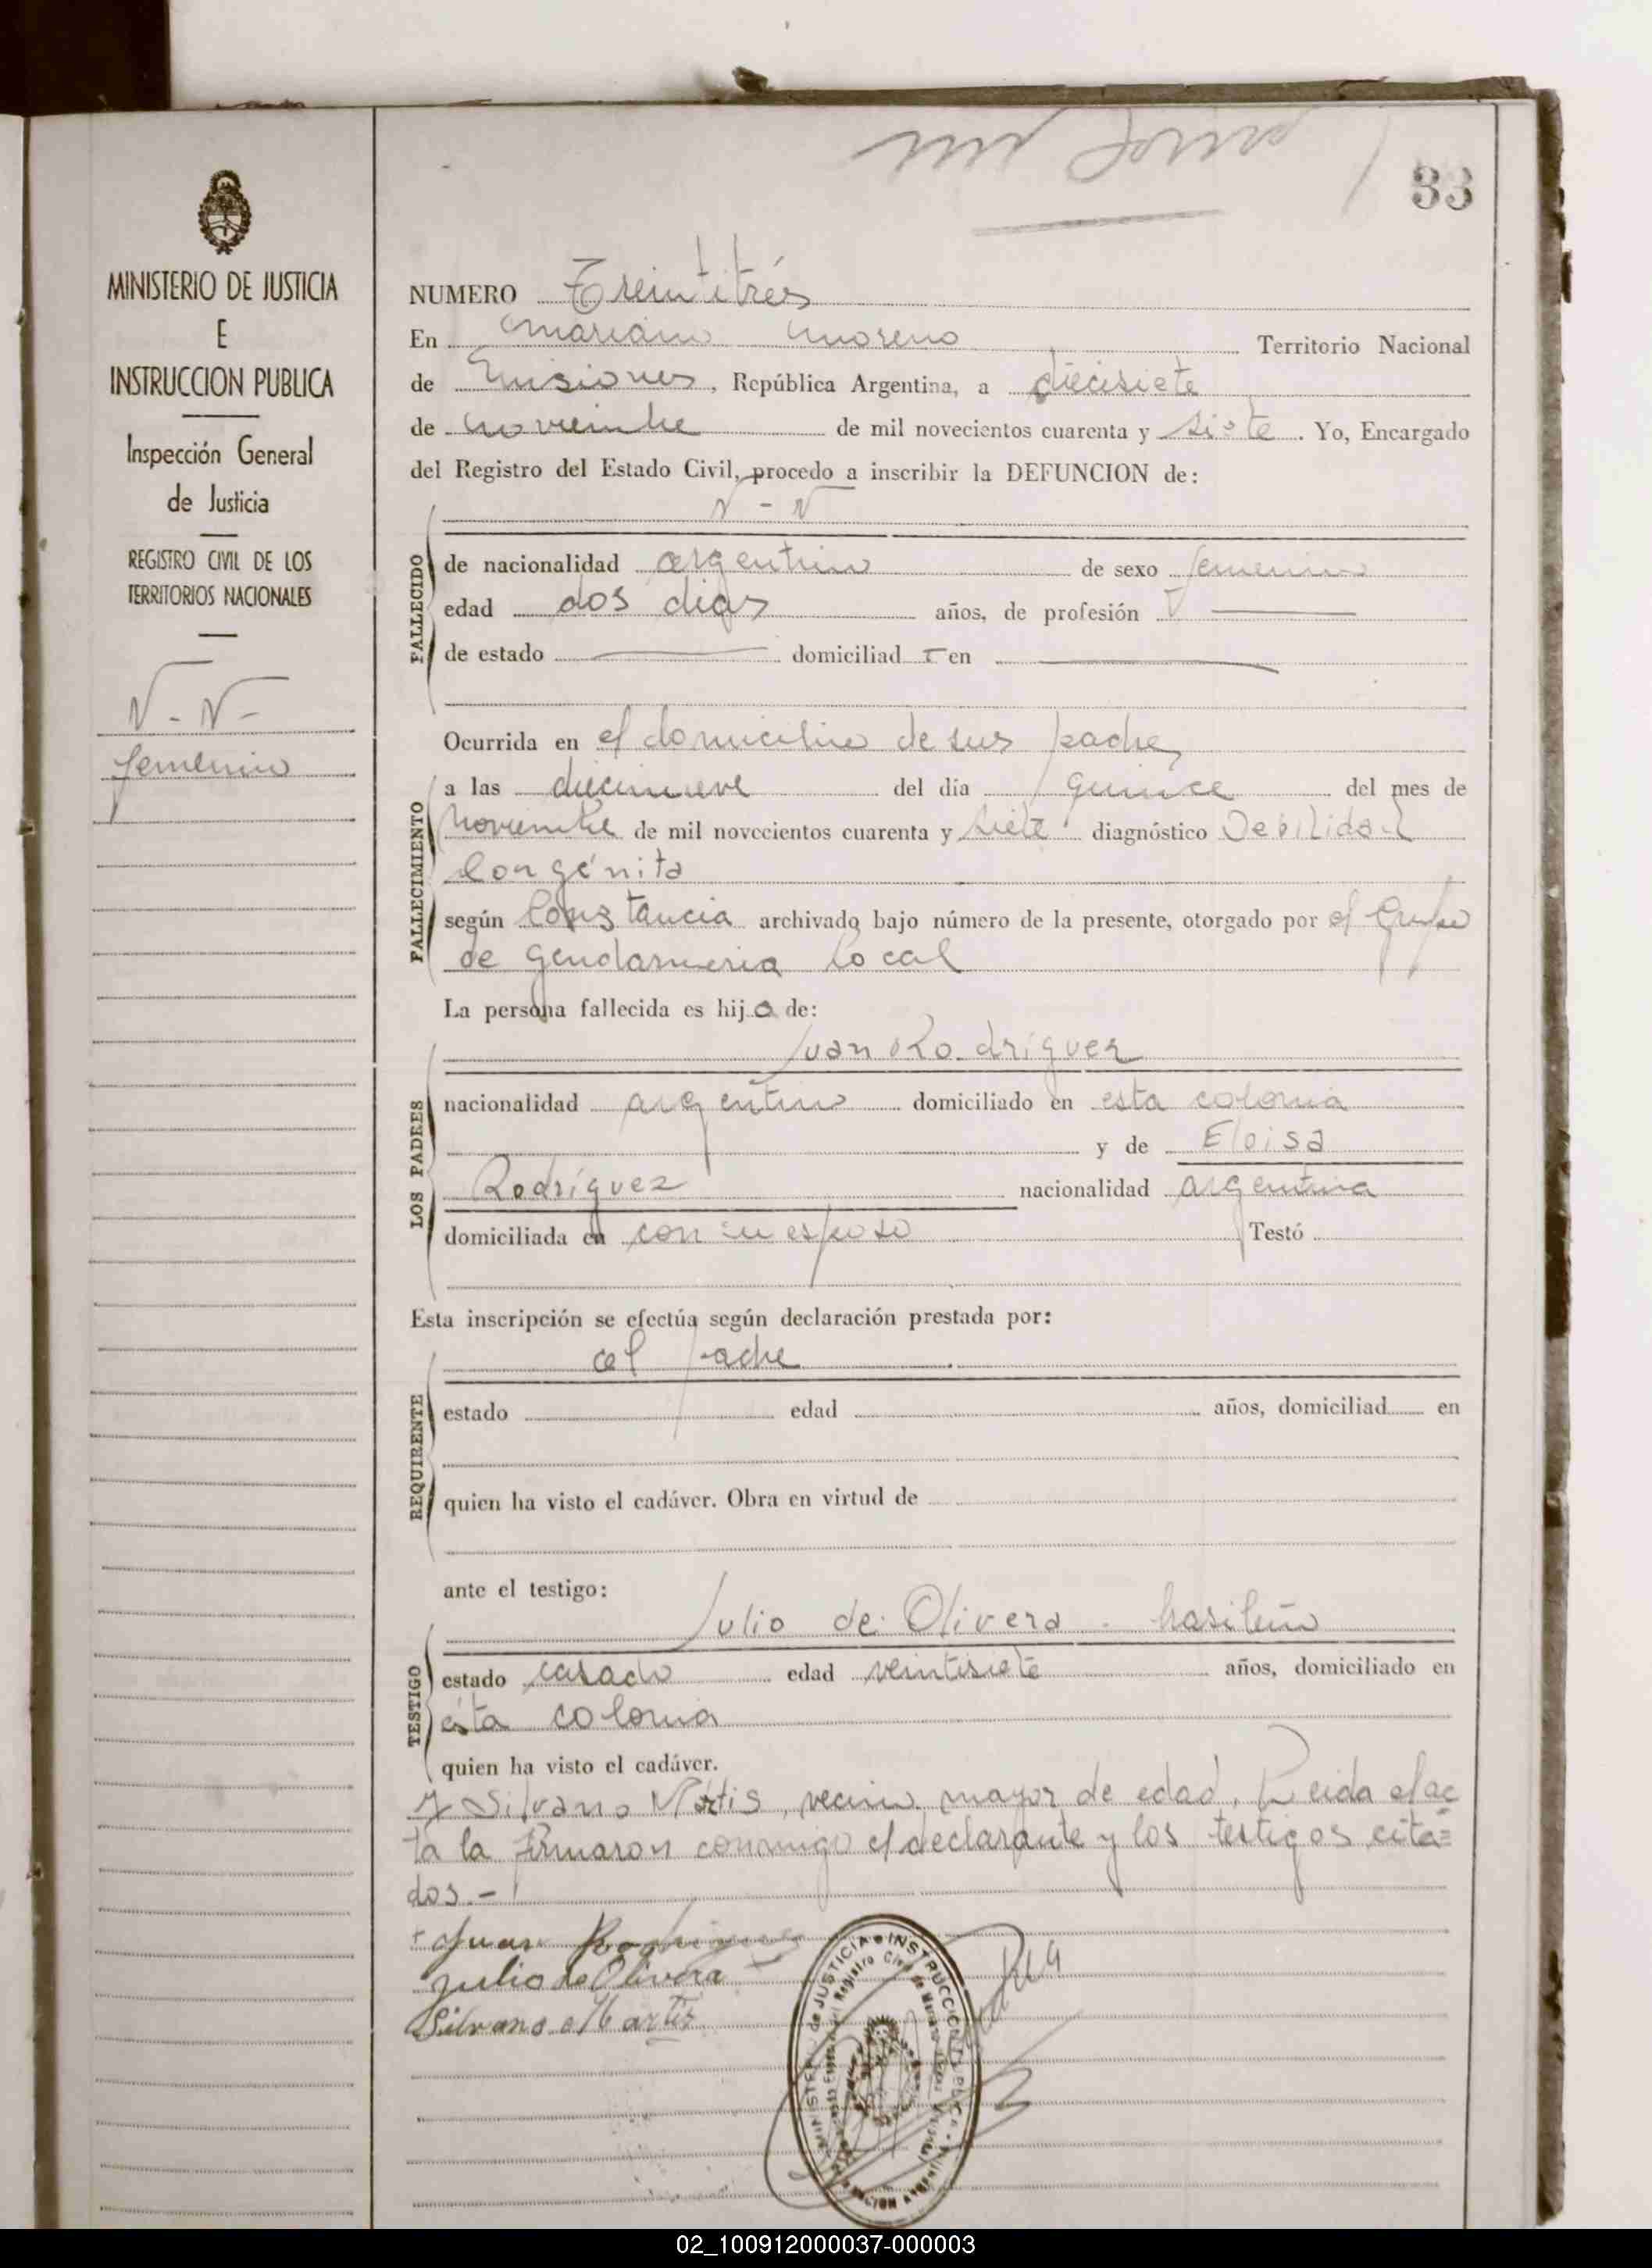 33
MINISTERIO DE JUSTICIA
E
INSTRUCCION PUBLICA
Inspección General
de Justicia
REGISTRO CIVIL DE LOS
TERRITORIOS NACIONALES
N - N -
femenino
NUMERO Treintitrés
En Mariano Moreno Territorio Nacional
de Misiones, República Argentina, a diecisiete
de noviembre de mil novecientos cuarenta y siete. Yo, Encargado
del Registro del Estado Civil, procedo a inscribir la DEFUNCION de:
N - N
FALLECIDO
de nacionalidad argentino de sexo femenino
edad dos dias años, de profesión
de estado domiciliad en
Ocurrida en el domicilio de sus padres
FALLECIMIENTO
a las diecinueve del día quince del mes de
Noviembre de mil novecientos cuarenta y siete diagnóstico Debilidad
Congénita
según Constancia archivado bajo número de la presente, otorgado por el Grupo
de Gendarmeria local
La persona fallecida es hijo de:
Juan Rodríguez
LOS PADRES
nacionalidad argentino domiciliado en esta colonia
y de Eloisa
Rodríguez nacionalidad argentina
domiciliada en con su esposo Testó
Esta inscripción se efectúa según declaración prestada por:
el padre
REQUIRENTE
estado edad años, domiciliad en
quien ha visto el cadáver. Obra en virtud de
ante el testigo:
Julio de Olivera - brasileño
TESTIGO
estado casado edad veintisiete años, domiciliado en
ésta colonia
quien ha visto el cadáver.
y Silvano Martis, vecino mayor de edad. Leida el ac
ta la firmaron conmigo el declarante y los testigos cita=
dos.-
Juan Rodriguez
Julio de Olivera
Silvano Martis
MINISTERIO de JUSTICIA e INSTRUCCION PUBLICA
02_100912000037-000003